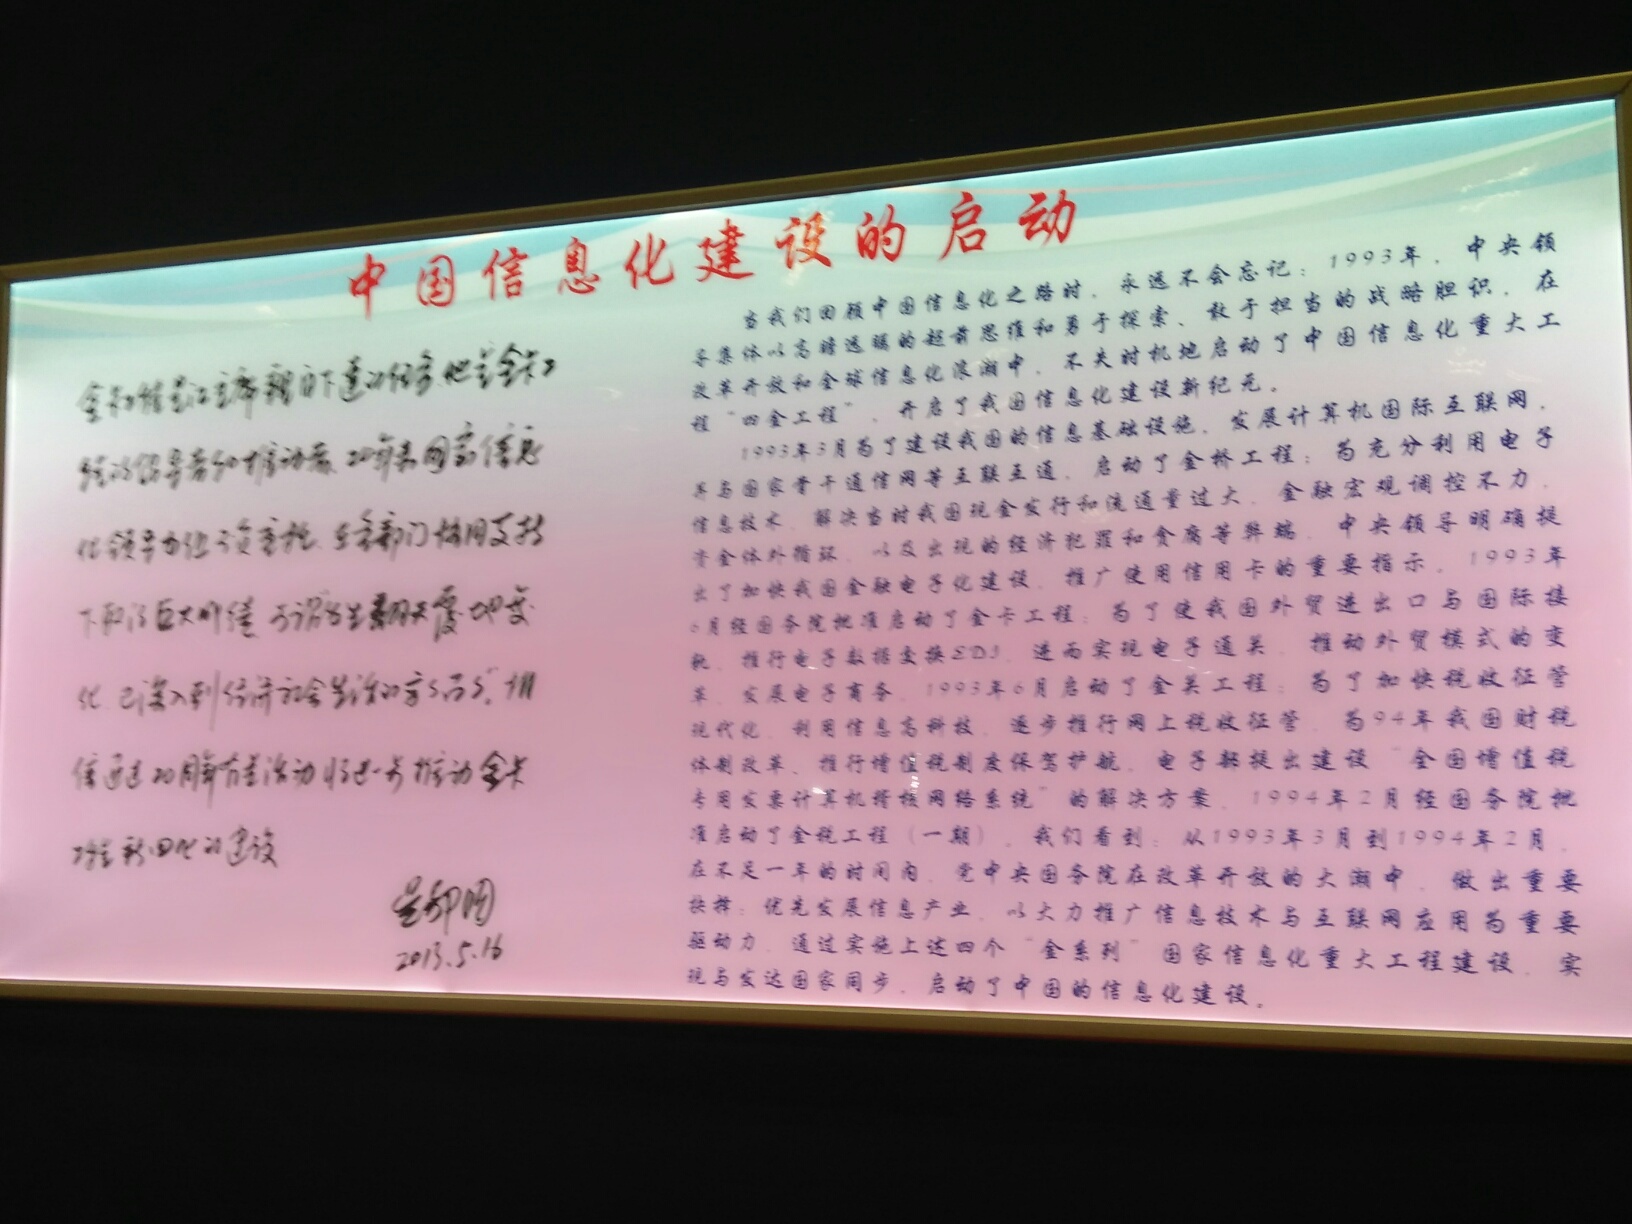 中国信息化建设的启动
金卡工程是江主席亲自下达的任务,他是金卡工
程的倡导者和推动者,20年来国家信息
化领导办组负责托、在各部门协同支持
下取得巨大成绩,可谓发生翻天覆地变
化,已深入到经济社会生活的方方面面。相
信通过20周年有益活动将进一步推动金卡
工程新四化的建设
吴邦国
2013.5.16
当我们回顾中国信息化之路时,永远不会忘记:1993年,中央领
导集体以高瞻远瞩的超前思维和勇于探索、敢于担当的战略胆识,在
改革开放和全球信息化浪潮中,不失时机地启动了中国信息化重大工
程“四金工程”,开启了我国信息化建设新纪元。
1993年3月为了建设我国的信息基础设施,发展计算机国际互联网,
并与国家骨干通信网等互联互通,启动了金桥工程;为充分利用电子
信息技术,解决当时我国现金发行和流通量过大,金融宏观调控不力,
资金体外循环,以及出现的经济犯罪和贪腐等弊端,中央领导明确提
出了加快我国金融电子化建设,推广使用信用卡的重要指示,1993年
6月经国务院批准启动了金卡工程;为了使我国外贸进出口与国际接
轨,推行电子数据交换EDI,进而实现电子通关,推动外贸模式的变
革,发展电子商务,1993年6月启动了金关工程;为了加快税收征管
现代化,利用信息高科技,逐步推行网上税收征管,为94年我国财税
体制改革、推行增值税制度保驾护航,电子部提出建设“全国增值税
专用发票计算机稽核网络系统”的解决方案,1994年2月经国务院批
准启动了金税工程(一期)。我们看到:从1993年3月到1994年2月,
在不足一年的时间内,党中央国务院在改革开放的大潮中,做出重要
抉择:优先发展信息产业,以大力推广信息技术与互联网应用为重要
驱动力,通过实施上述四个“金系列”国家信息化重大工程建设,实
现与发达国家同步,启动了中国的信息化建设。